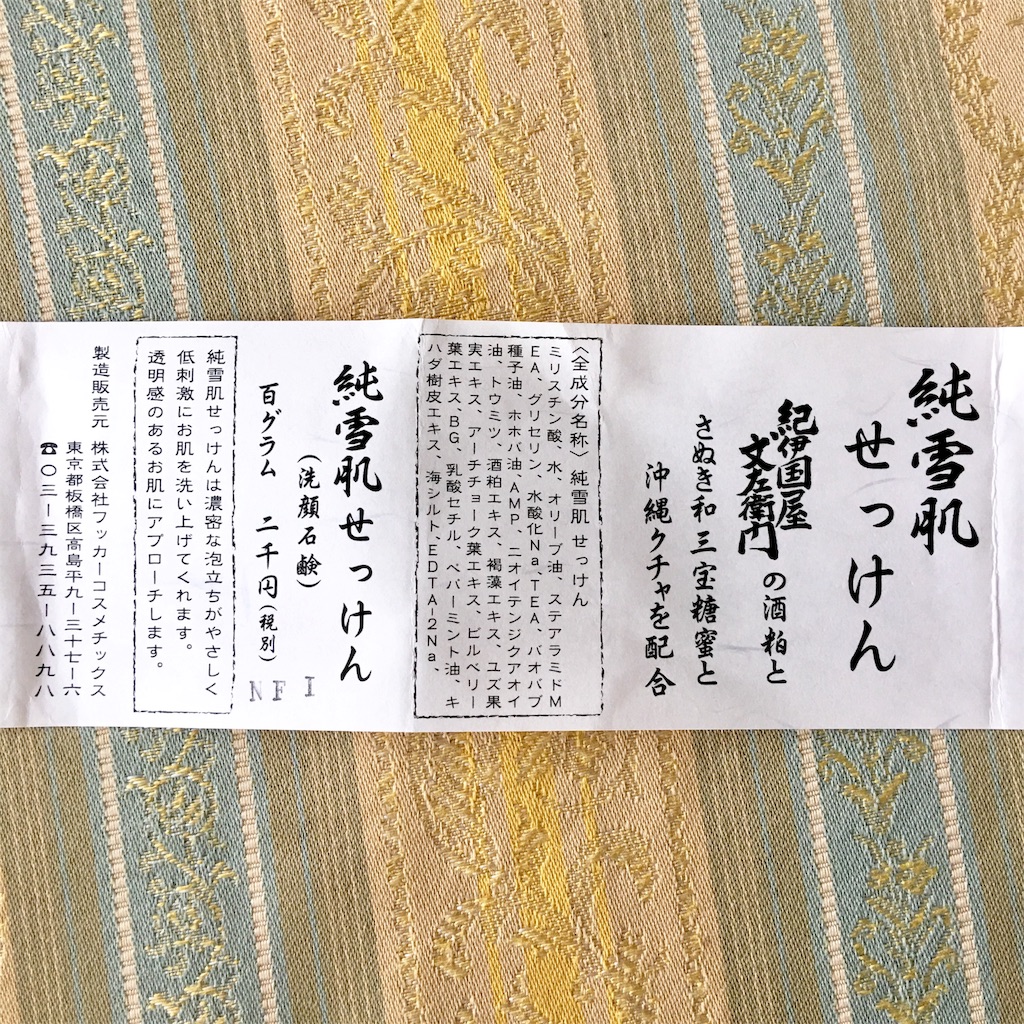 純雪肌
せっけん
紀伊国屋
文左衛門の酒粕と
さぬき和三宝糖蜜と
沖縄クチャを配合
〈全成分名称〉純雪肌 せっけん
ミリスチン酸、水、オリーブ油、ステアラミドM
EA、グリセリン、水酸化Na、TEA、バオバブ
種子油、ホホバ油、AMP、ニオイテンジクアオイ
油、トウミツ、酒粕エキス、褐藻エキス、ユズ果
実エキス、アーチチョーク葉エキス、ビルベリー
葉エキス、BG、乳酸セチル、ペパーミント油、キ
ハダ樹皮エキス、海シルト、EDTA-2Na、
純雪肌せっけん
(洗顔石鹸)
百グラム 二千円(税別)
NFI
純雪肌せっけんは濃密な泡立ちがやさしく
低刺激にお肌を洗い上げてくれます。
透明感のあるお肌にアプローチします。
製造販売元 株式会社フッカーコスメチックス
東京都板橋区高島平九ー三十七ー六
☎〇三ー三九三五ー八八九八